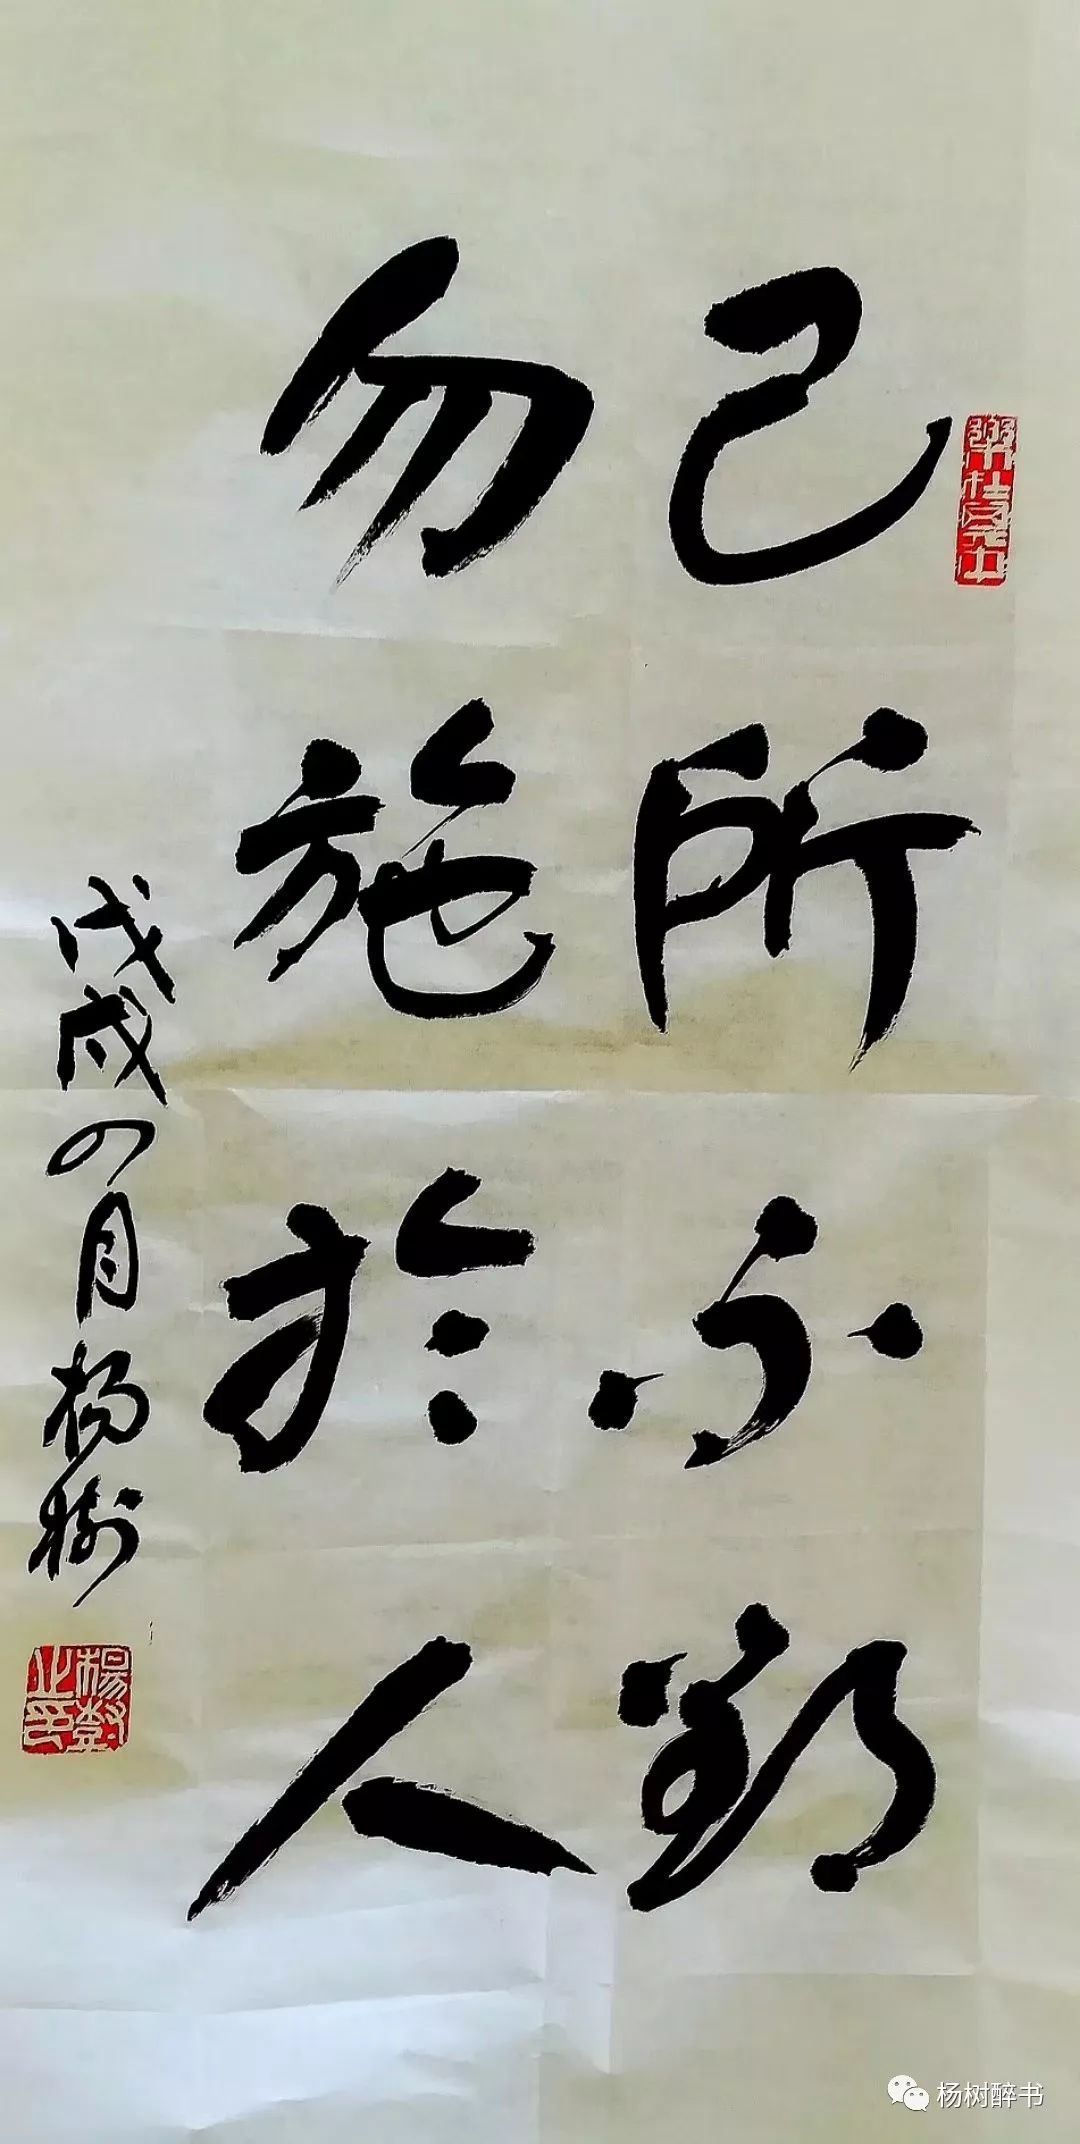 己所不欲
勿施於人
戊戌四月杨树
楊樹之印
杨树醉书